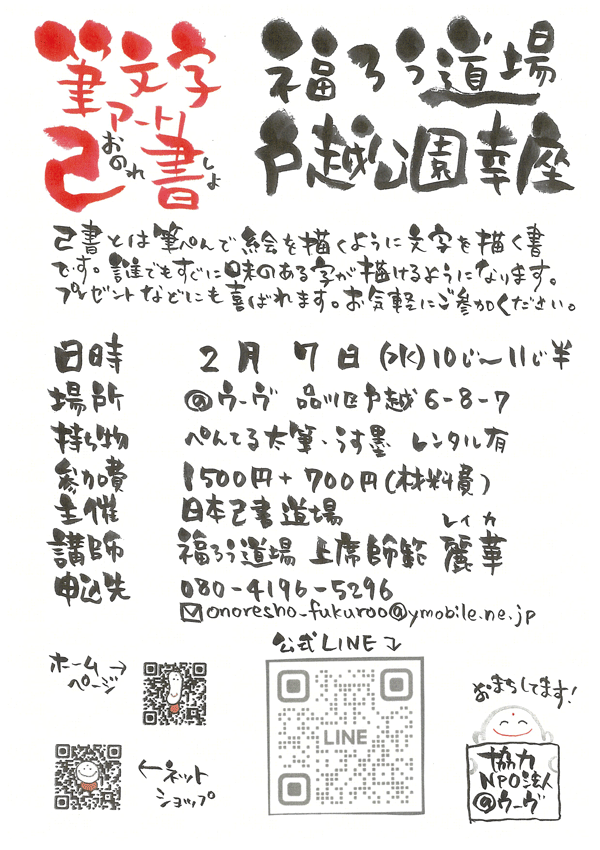 筆文字
アート!
己書
おのれ
しょ
福ろう道場
戸越公園幸座
己書とは筆ぺんで絵を描くように文字を描く書
です。誰でもすぐに味のある字が描けるようになります。
プレゼントなどにも喜ばれます。お気軽にご参加ください。
日時 2月7日(水)10じ〜11じ半
場所 @ウーヴ 品川区戸越6-8-7
持ち物 ぺんてる太筆・うす墨 レンタル有
参加費 1500円+700円(材料費)
主催 日本己書道場
レイカ
講師 福ろう道場 上席師範 麗華
申込先 080-4196-5296
onoresho_fukuroo@ymobile.ne.jp
公式LINE
ホーム
ページ
LINE
おまちしてます!
ネット
ショップ
協力
NPO法人
@ウーヴ